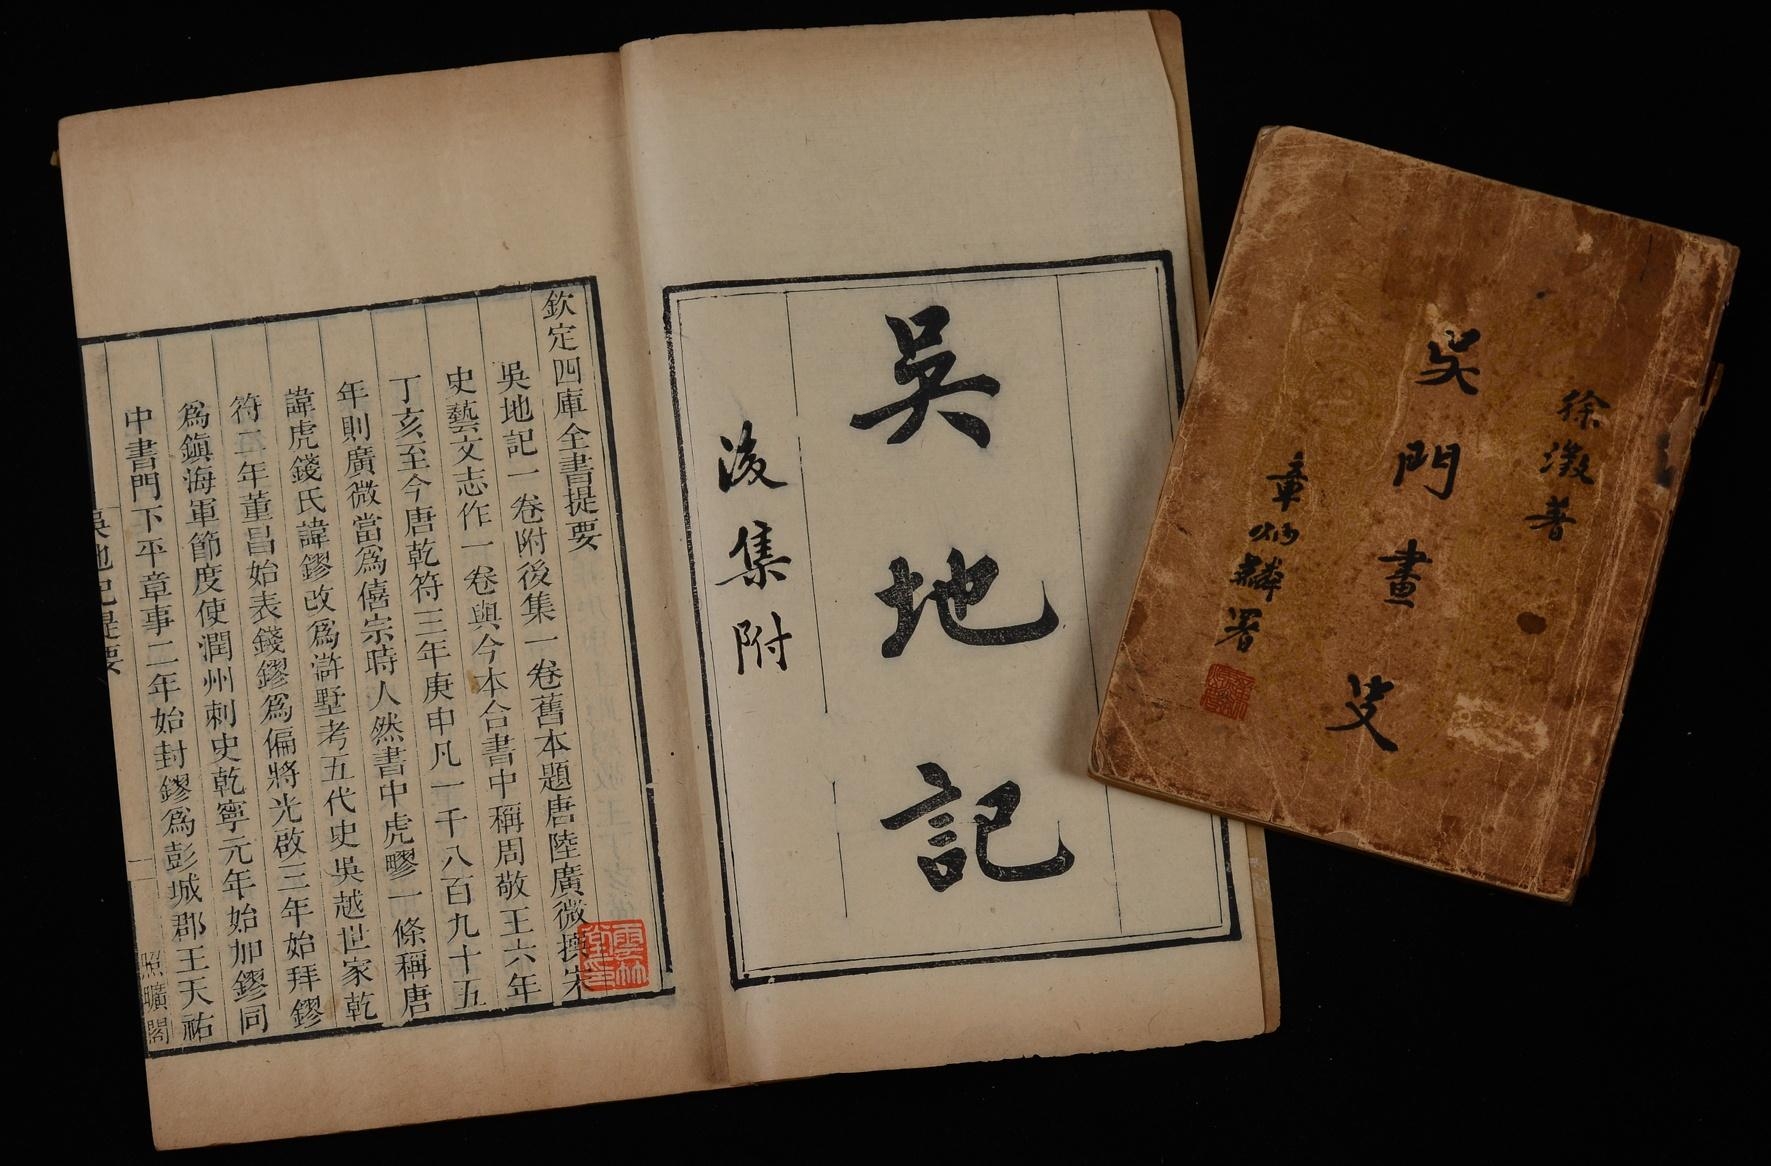 吳地記
後集附
欽定四庫全書提要
吳地記一卷附後集一卷舊本題唐陸廣微撰宋
史藝文志作一卷與今本合書中稱周敬王六年
丁亥至今唐乾符三年庚申凡一千八百九十五
年則廣微當爲僖宗時人然書中虎疁一條稱唐
諱虎錢氏諱鏐改爲滸墅考五代史吳越世家乾
符二年董昌始表錢鏐爲偏將光啟三年始拜鏐
爲鎭海軍節度使潤州刺史乾寧元年始加鏐同
中書門下平章事二年始封鏐爲彭城郡王天祐
吳地記提要
一
照曠閣
徐澂著
吳門畫
章炳麟署